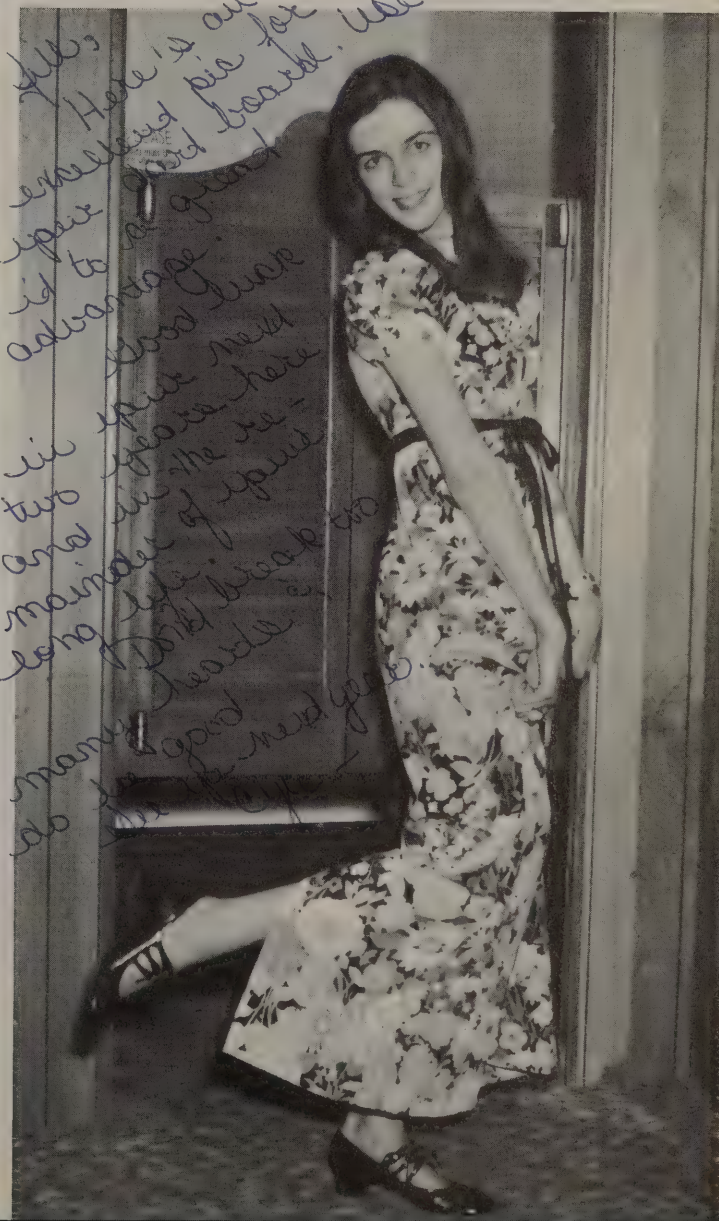 Here's an
excellent pic for
your dart board. Use
it to a grand
advantage.
Good luck
in your next
two years here
and in the re-
mainder of your
long life.
Don't break too
many hearts &
do be good
See ya next year